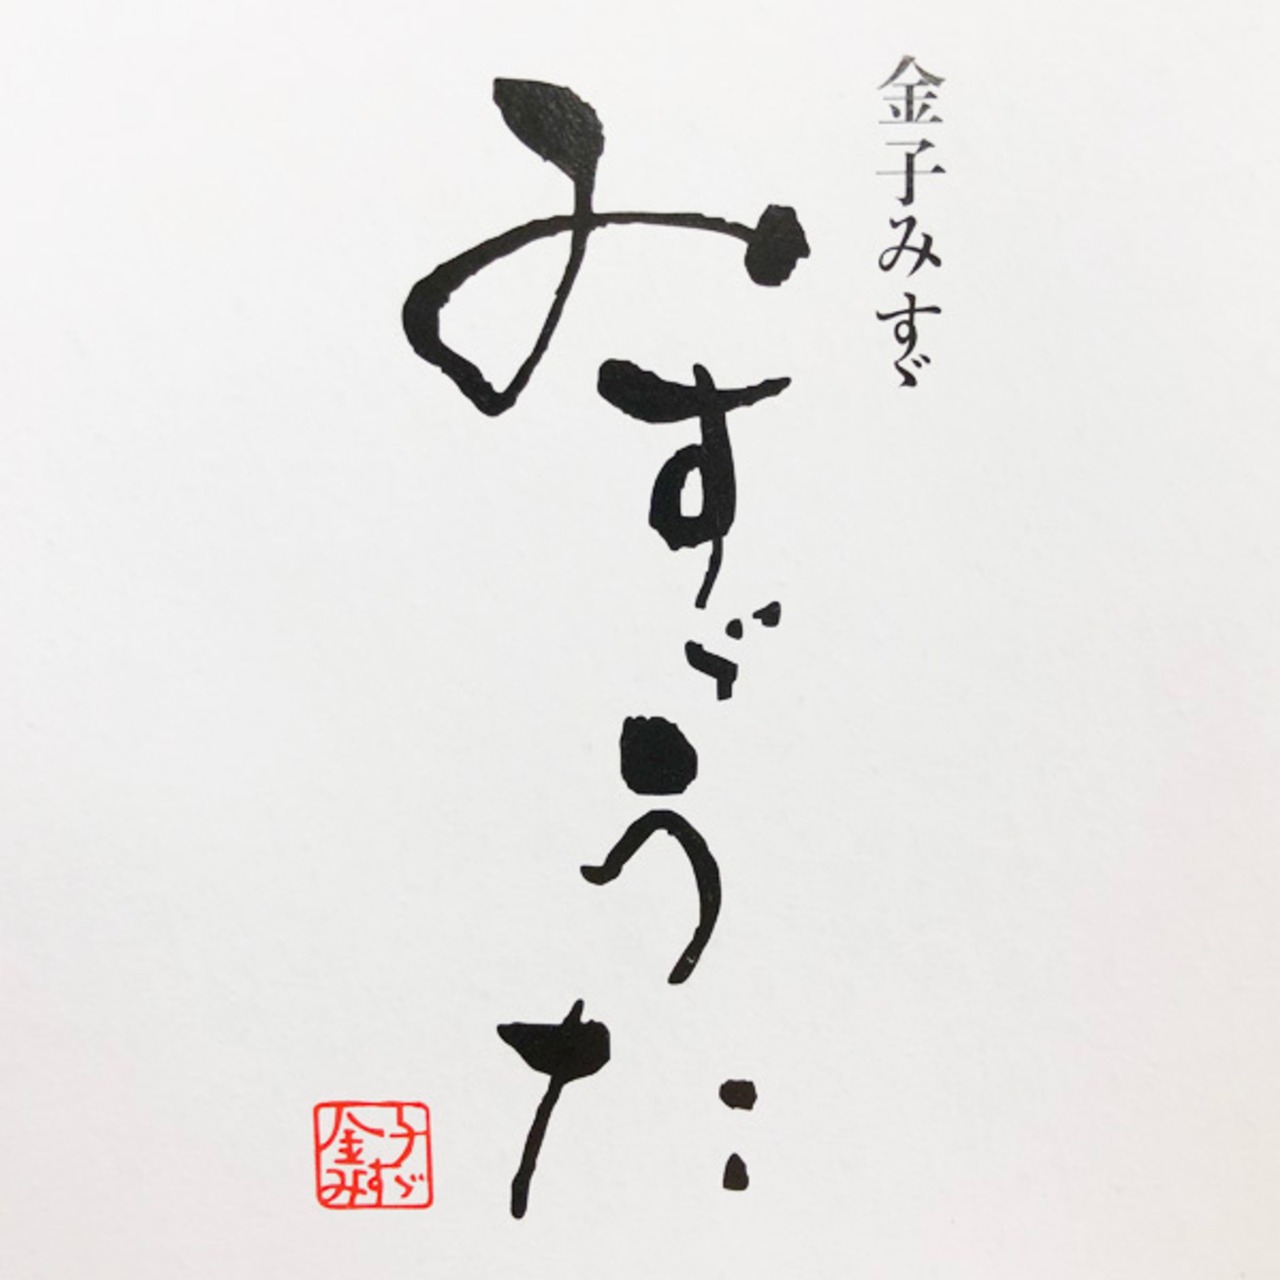 金子みすゞ
みすゞうた
金子
みすゞ